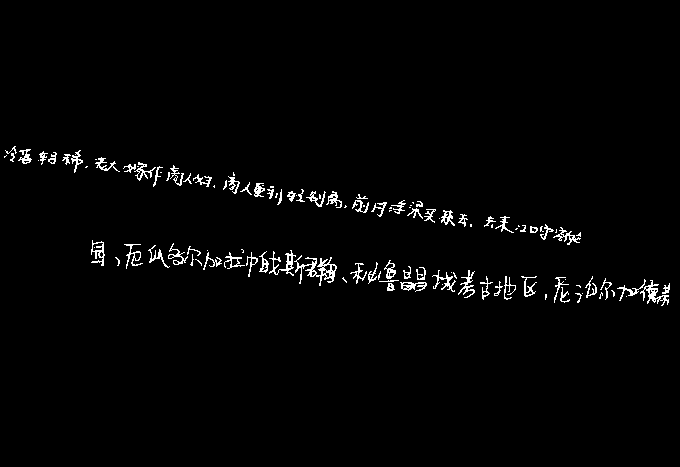 冷落车马稀,老大嫁作商人妇,商人重利轻别离,前月浮梁买茶去,去来江口守空船
岛、厄瓜多尔加拉帕戈斯群岛、秘鲁昌昌城考古地区,尼泊尔加德满